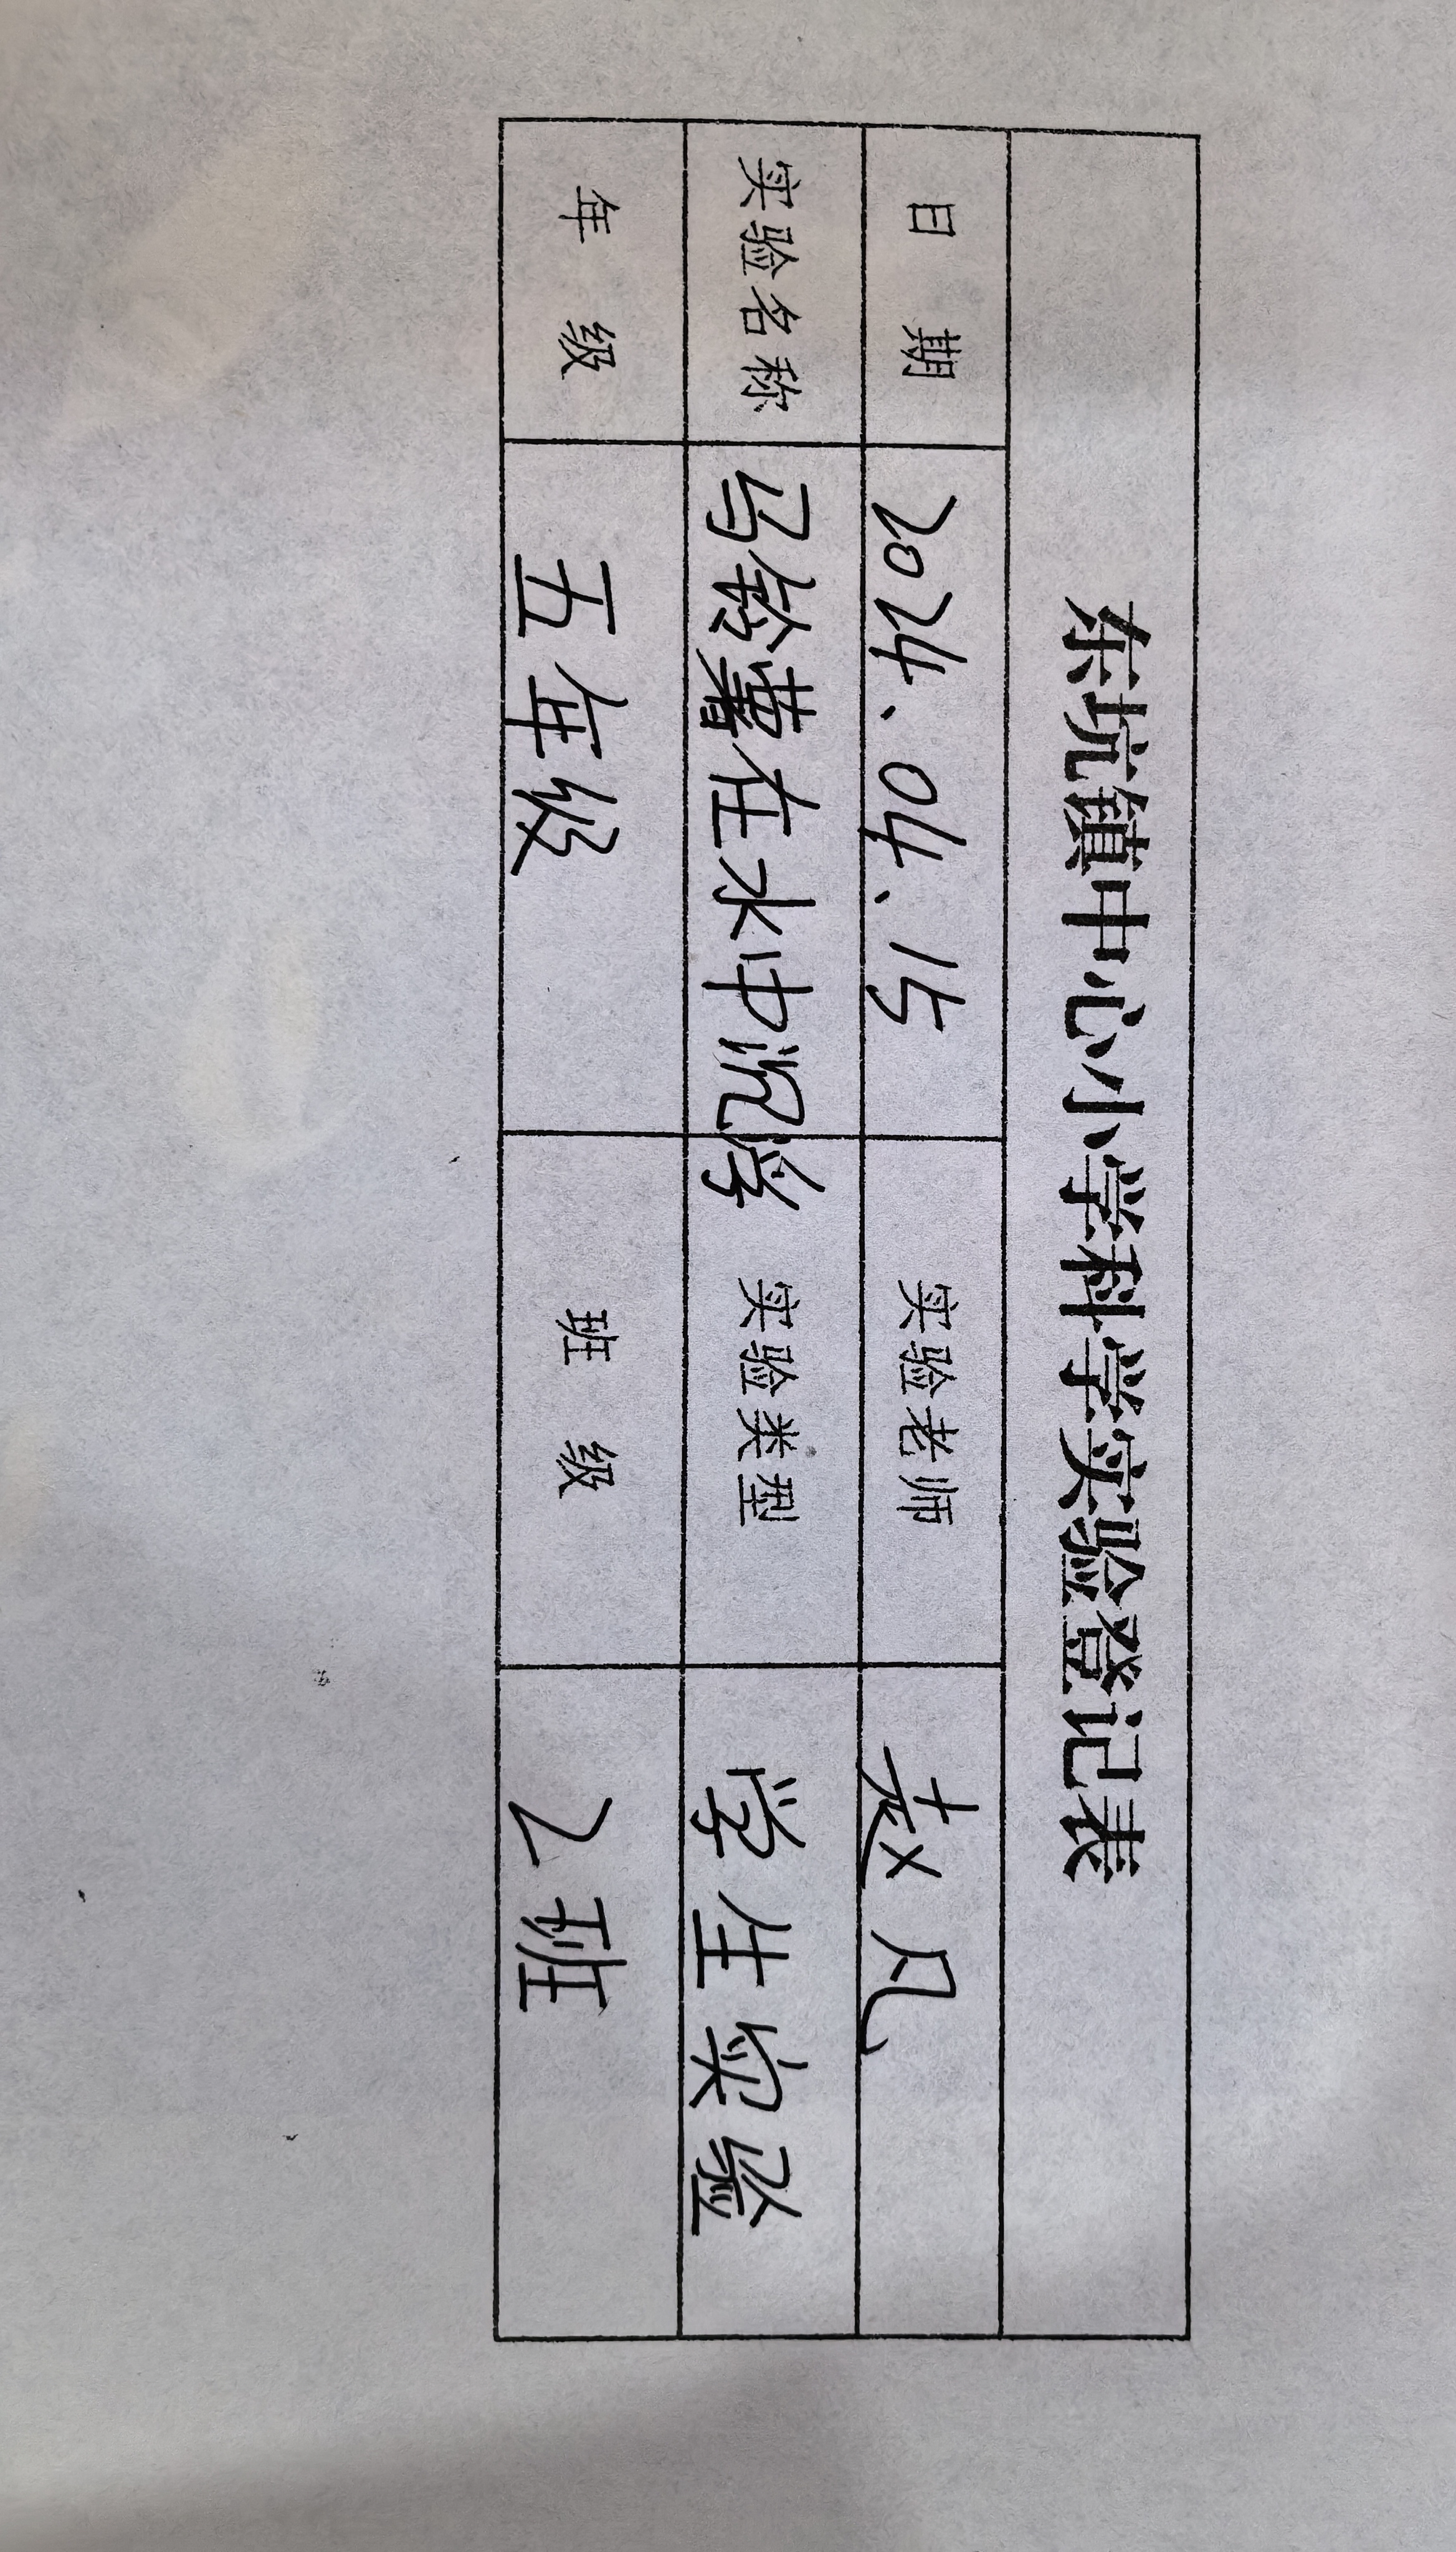 东坑镇中心小学科学实验登记表
日 期 2024.04.15 实验老师 赵凡
实验名称 马铃薯在水中沉浮 实验类型 学生实验
年 级 五年级 班 级 2班